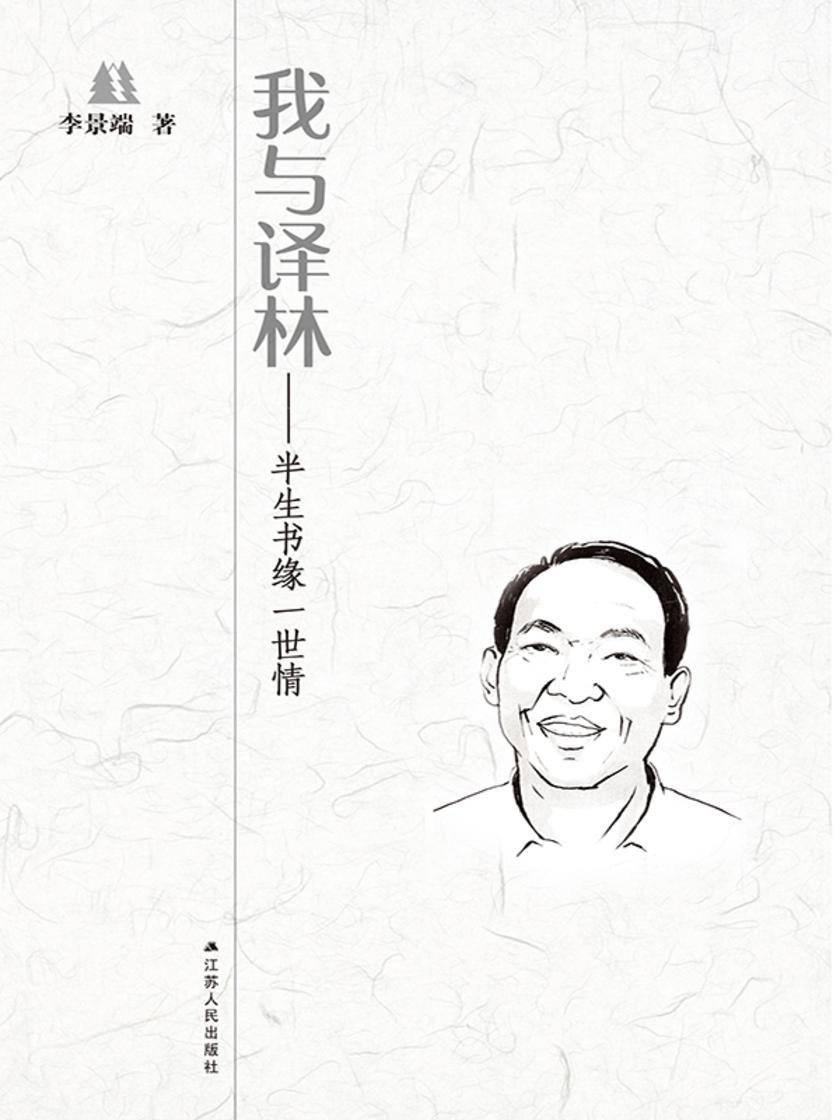 李景端 著
我与译林
——半生书缘一世情
江苏人民出版社